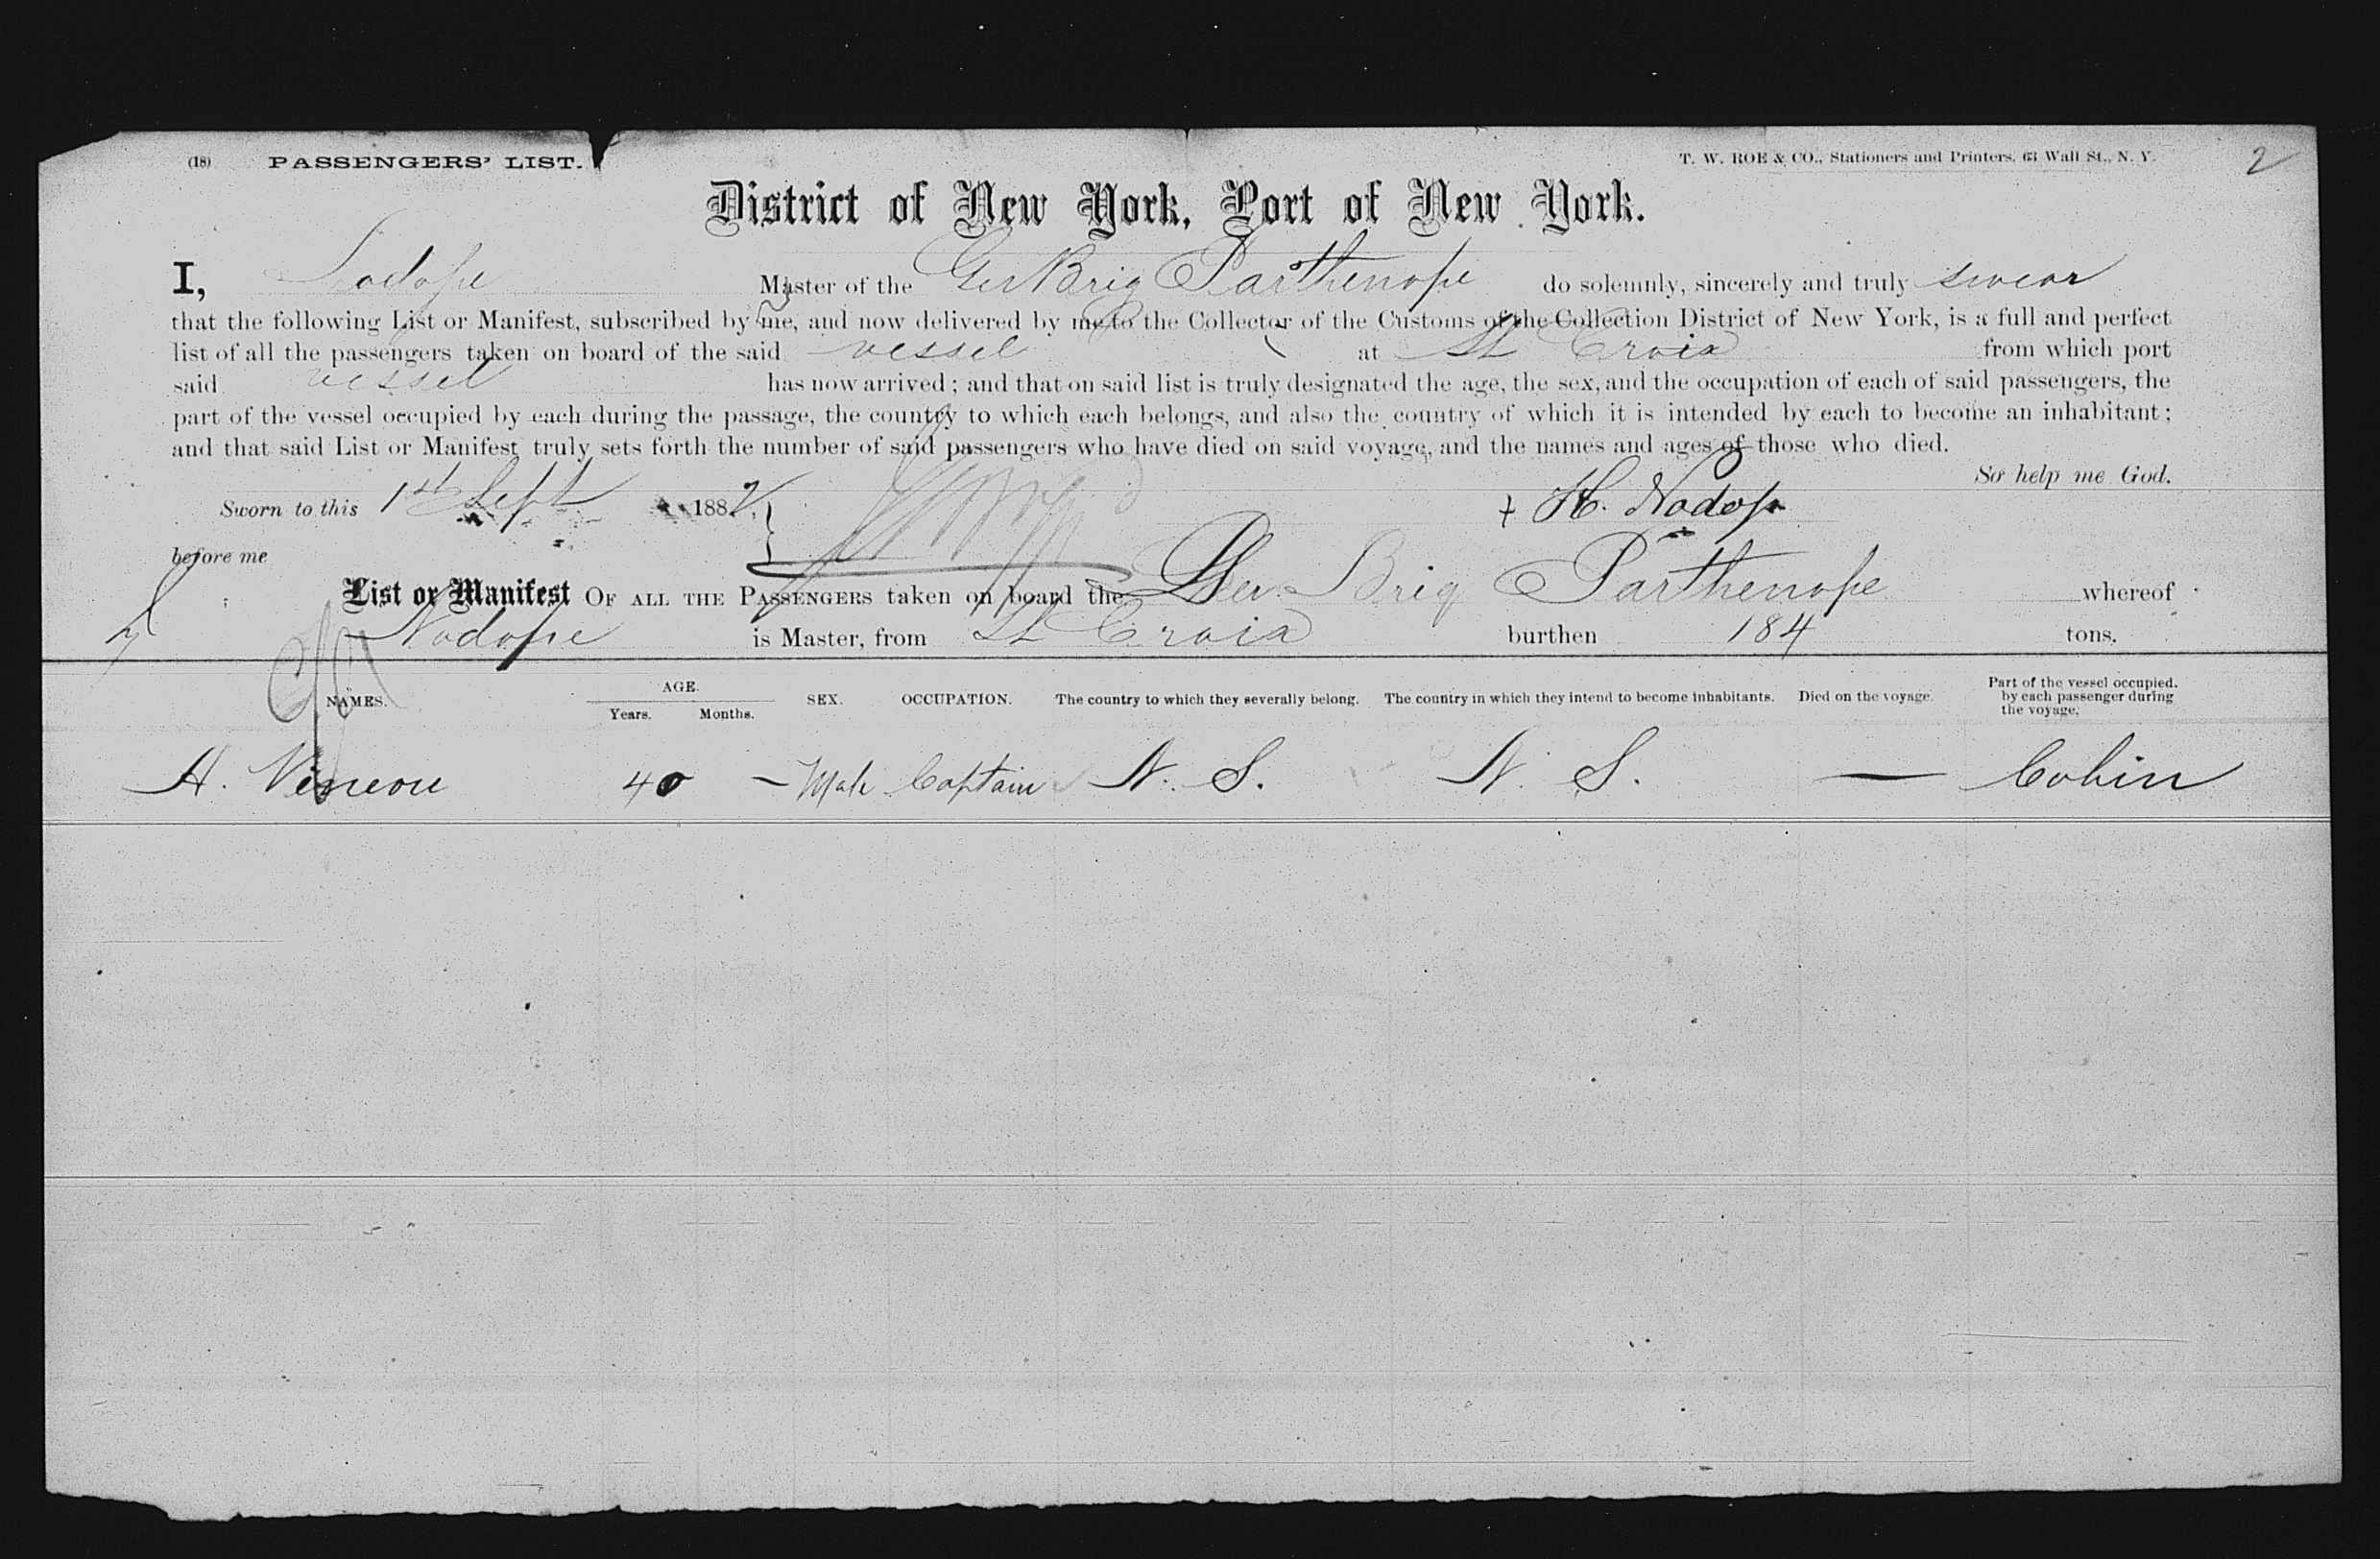 (18) PASSENGERS' LIST. T. W. ROE & CO., Stationers and Printers, 63 Wall St., N. Y. 2
District of New York, Port of New York.
I, Nodope Master of the Ger Brig Parthenope do solemnly, sincerely and truly swear
that the following List or Manifest, subscribed by me, and now delivered by me to the Collector of the Customs of the Collection District of New York, is a full and perfect
list of all the passengers taken on board of the said vessel at St Croix from which port
said vessel has now arrived; and that on said list is truly designated the age, the sex, and the occupation of each of said passengers, the
part of the vessel occupied by each during the passage, the country to which each belongs, and also the country of which it is intended by each to become an inhabitant;
and that said List or Manifest truly sets forth the number of said passengers who have died on said voyage, and the names and ages of those who died.
So help me God.
Sworn to this 1st Sept 1882 H. Nodop
before me
List or Manifest OF ALL THE PASSENGERS taken on board the Ger Brig Parthenope whereof
Nodope is Master, from St Croix burthen 184 tons.
NAMES. AGE. Years. Months. SEX. OCCUPATION. The country to which they severally belong. The country in which they intend to become inhabitants. Died on the voyage. Part of the vessel occupied by each passenger during the voyage.
H. 40 – Male Captain N. S. N. S. — Cabin